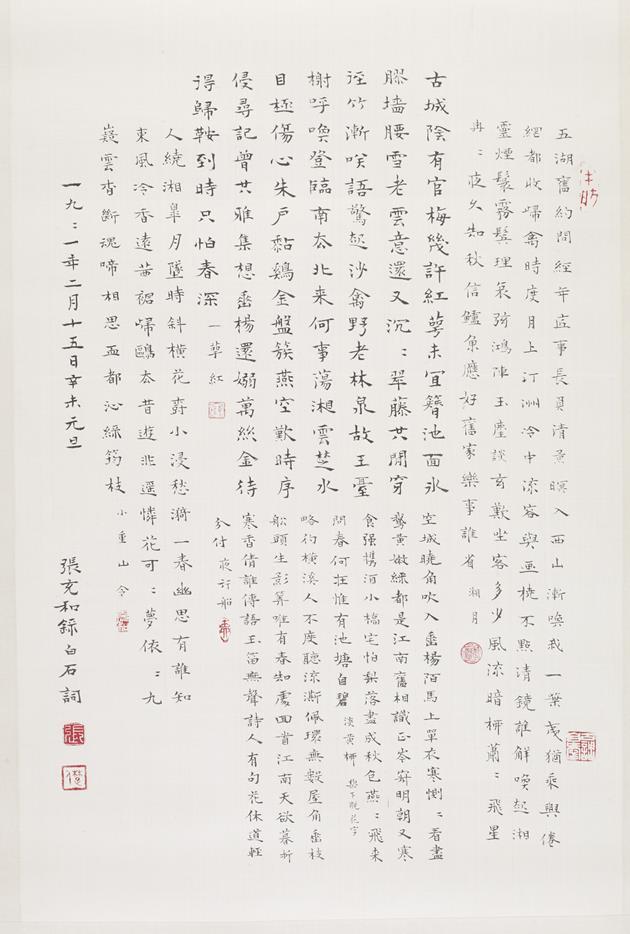 五湖舊約問經年底事長負清景暝入西山漸喚我一葉夷猶乘興倦
網都收歸禽時度月上汀洲冷中流容與畫橈不點清鏡誰解喚起湘
靈煙鬟霧鬢理哀弦鴻陣玉麈談玄歎坐客多少風流暗柳蕭〻飛星
冉〻夜久知秋信鱸魚應好舊家樂事誰省 湘月
古城陰有官梅幾許紅萼未宜簪池面冰
膠墻腰雪老雲意還又沉〻翠藤共閒穿
徑竹漸笑語驚起沙禽野老林泉故王臺
榭呼喚登臨南去北來何事蕩湘雲楚水
目極傷心朱戶黏鷄金盤簇燕空歎時序
侵尋記曾共雅集想垂楊還嫋萬絲金待
得歸鞍到時只怕春深 一萼紅
空城曉角吹入垂楊陌馬上單衣寒惻〻看盡
鵞黃嫩綠都是江南舊相識正岑寂明朝又寒
食强攜酒小橋宅怕梨落盡成秋色燕〻飛來
問春何在惟有池塘自碧 淡黃柳 梨下脫花字
略彴橫溪人不度聽流澌佩環無數屋角垂枝
船頭生影算唯有春知處回首江南天欲暮折
寒香倩誰傳語玉笛無聲詩人有句花休道輕
分付 夜行船
人繞湘皐月墜時斜橫花樹小浸愁漪一春幽思有誰知
東風冷香遠茜裙歸鷗去昔遊非遥憐花可〻夢依〻九
疑雲杳斷魂啼相思血都沁綠筠枝 小重山令
一九〻一年二月十五日辛未元旦
張充和錄白石詞
張